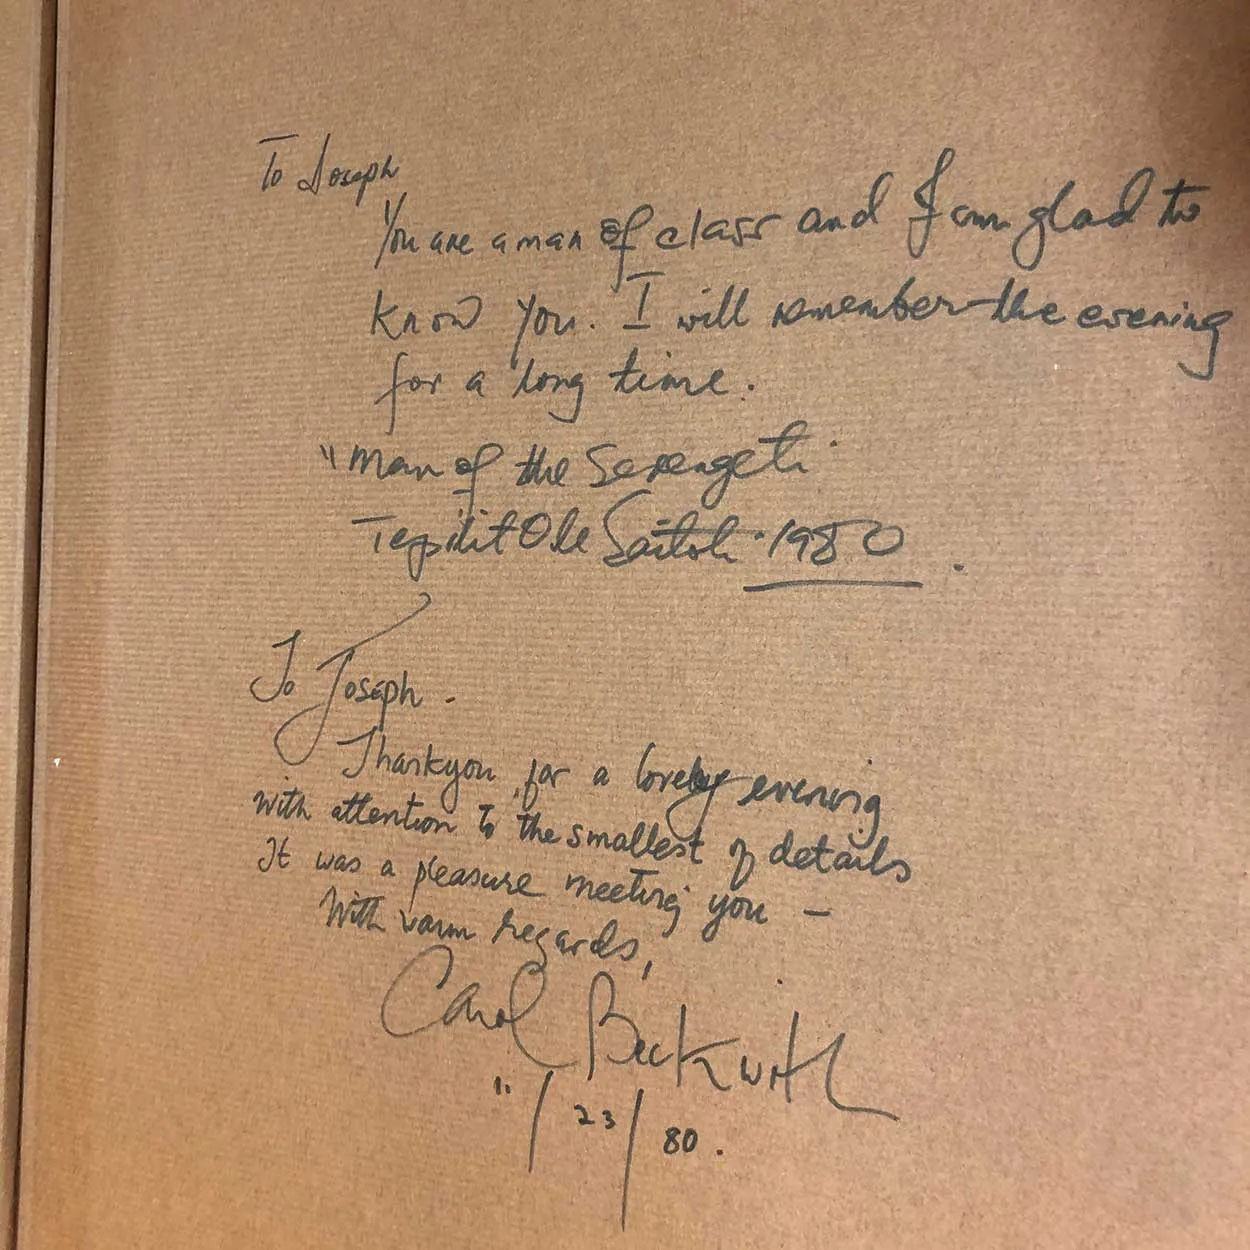 To Joseph
You are a man of class and I am glad to
know you. I will remember the evening
for a long time.
"Man of the Serengeti
Tepilit Ole Saitoti. 1980.
To Joseph.
Thankyou for a lovely evening
with attention to the smallest of details
It was a pleasure meeting you –
With warm regards,
Carol Beckwith
11/23/80.